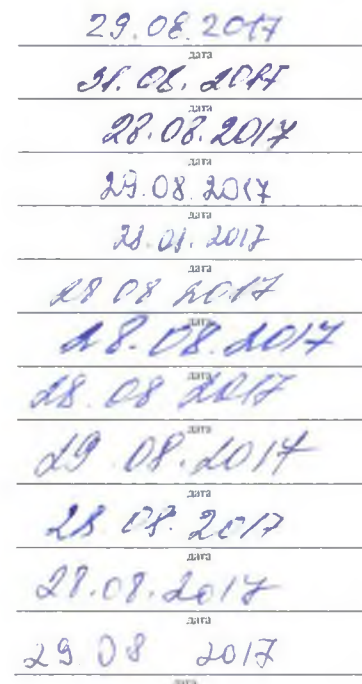 29.08.2017
дата
31.08.2017
дата
28.08.2017
дата
29.08.2017
дата
28.08.2017
дата
28 08 2017
дата
28.08.2017
дата
28.08 2017
дата
29 08.2017
дата
28 08.2017
дата
28.08.2017
дата
29 08 2017
дата